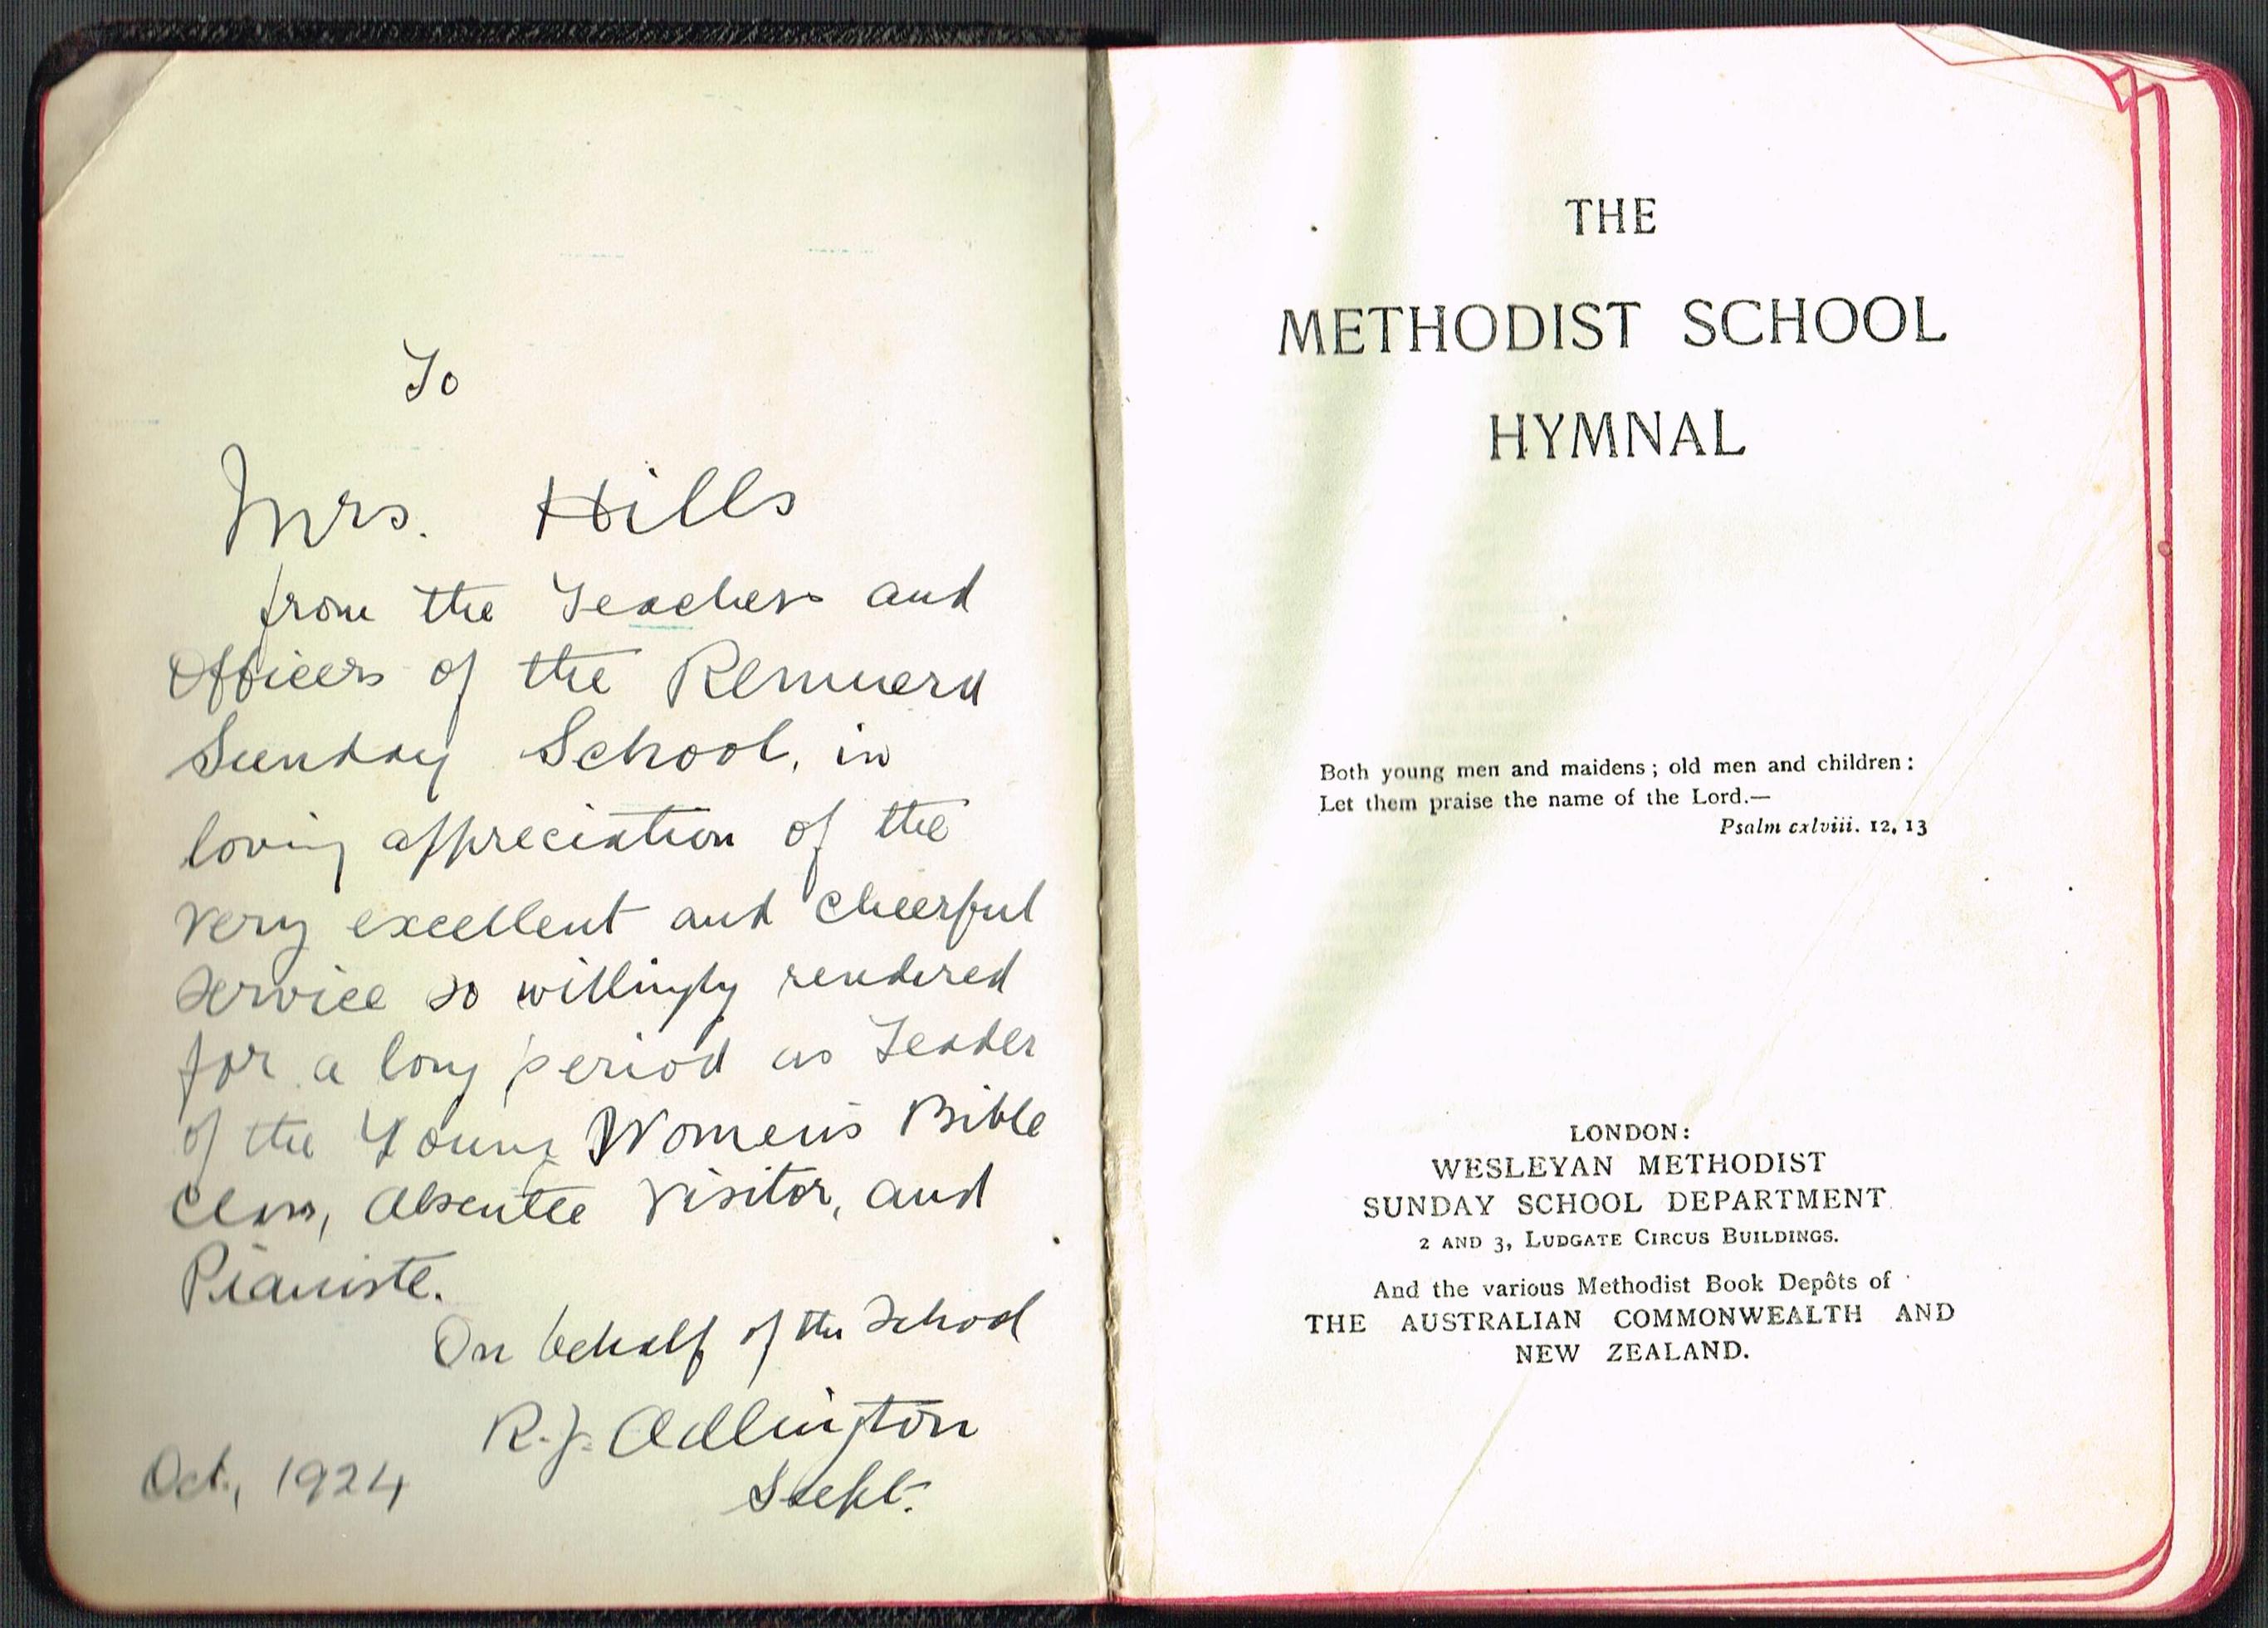 To
Mrs. Hills
from the Teachers and
Officers of the Remuera
Sunday School, in
loving appreciation of the
very excellent and cheerful
service so willingly rendered
for a long period as Leader
of the Young Women's Bible
Class, Absentee Visitor, and
Pianiste.
On behalf of the School
R. J. Adlington
Supt.
Oct., 1924
THE
METHODIST SCHOOL
HYMNAL
Both young men and maidens; old men and children:
Let them praise the name of the Lord.—
Psalm cxlviii. 12, 13
LONDON:
WESLEYAN METHODIST
SUNDAY SCHOOL DEPARTMENT
2 AND 3, LUDGATE CIRCUS BUILDINGS.
And the various Methodist Book Depôts of
THE AUSTRALIAN COMMONWEALTH AND
NEW ZEALAND.